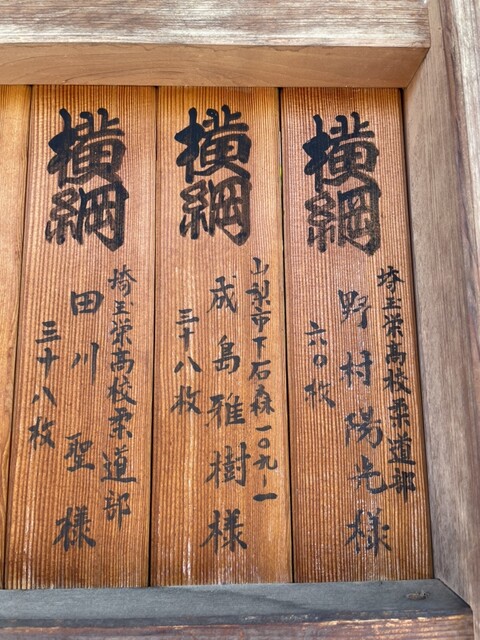 横綱
埼玉栄高校柔道部
野村陽光様
六〇枚
横綱
山梨市下石森一〇九ー一
成島雅樹様
三十八枚
横綱
埼玉栄高校柔道部
田川聖様
三十八枚